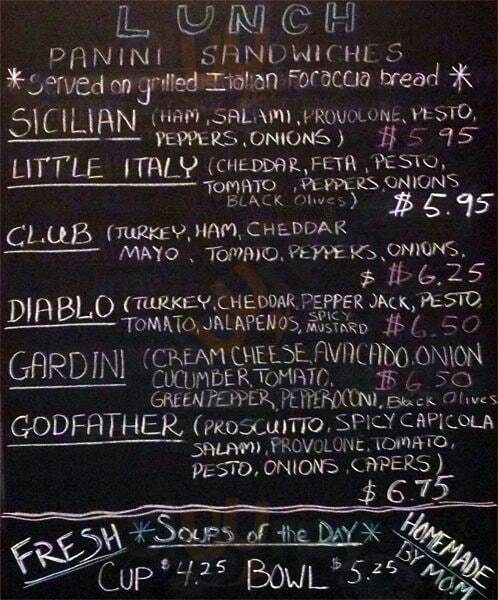 LUNCH
PANINI SANDWICHES
*Served on grilled Italian Foraccia bread*
SICILIAN (HAM, SALAMI, PROVOLONE, PESTO,
PEPPERS, ONIONS) $5.95
LITTLE ITALY (CHEDDAR, FETA, PESTO,
TOMATO, PEPPERS, ONIONS
BLACK Olives) $5.95
CLUB (TURKEY, HAM, CHEDDAR
MAYO, TOMATO, PEPPERS, ONIONS,
$ $6.25
DIABLO (TURKEY, CHEDDAR, PEPPER JACK, PESTO,
TOMATO, JALAPENOS, SPICY MUSTARD $6.50
GARDINI (CREAM CHEESE, AVACADO, ONION
CUCUMBER, TOMATO, $6.50
GREEN PEPPER, PEPPEROCONI, Black Olives
GODFATHER (PROSCUITTO, SPICY CAPICOLA
SALAMI, PROVOLONE, TOMATO,
PESTO, ONIONS, CAPERS)
$6.75
FRESH *Soups of the Day* HOMEMADE BY MOM
CUP $4.25 BOWL $5.25